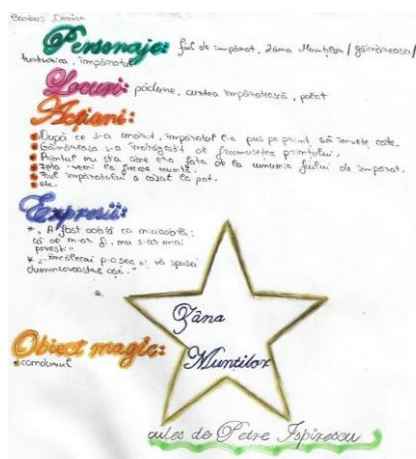 Personaje: fiul de împărat, Zâna Munților/găinăreasa/
turturica, împăratul
Locuri: pădure, curtea împărătească, palat
Acțiuni:
După ce s-a însurat, împăratul l-a pus pe prinț să învețe carte.
Găinăreasa s-a îndrăgostit de frumusețea prințului.
Prințul nu știa cine era fata de la nunta fiului de împărat.
Fiul împăratului a căzut la pat.
etc.
Expresii:
* „A fost odată ca niciodată;
că de n-ar fi, nu s-ar mai
povesti"
* „-încălecai p-o șea și vă spusei
dumneavoastră așa."
Zâna
Munților
Obiect magic:
cules de Petre Ispirescu